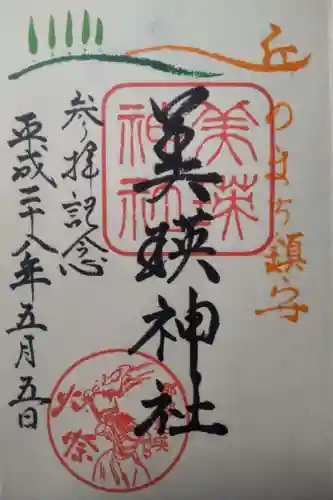 丘のまち鎮守
美瑛神社
美瑛神社
参拝記念
平成二十八年五月五日
火祭
美瑛